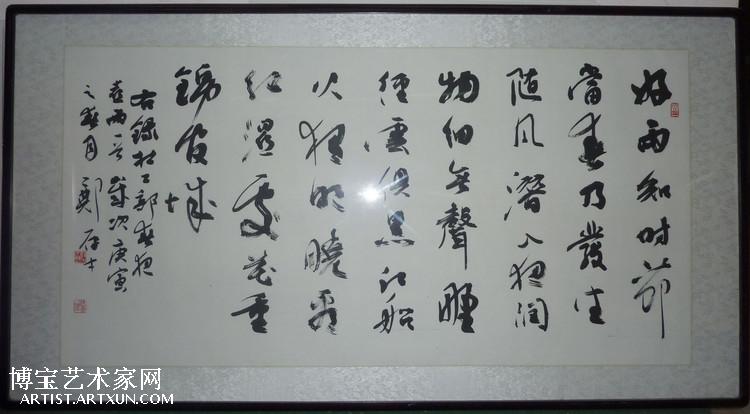 好雨知时節
當春乃發生
随风潛入夜润
物细無聲野
径雲俱黑江船
火独明曉看
红濕處花重
锦官城
右録杜工部春夜
喜雨一首歲次庚寅
之月鄭
博宝艺术家网
ARTIST.ARTXUN.COM